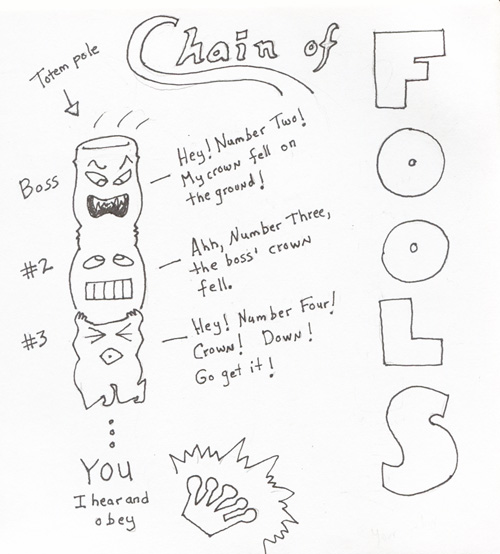 Chain of
FOOLS
Totem pole
Boss
Hey! Number Two!
My crown fell on
the ground!
#2
Ahh, Number Three,
the boss' crown
fell.
#3
Hey! Number Four!
Crown! Down!
Go get it!
YOU
I hear and
obey